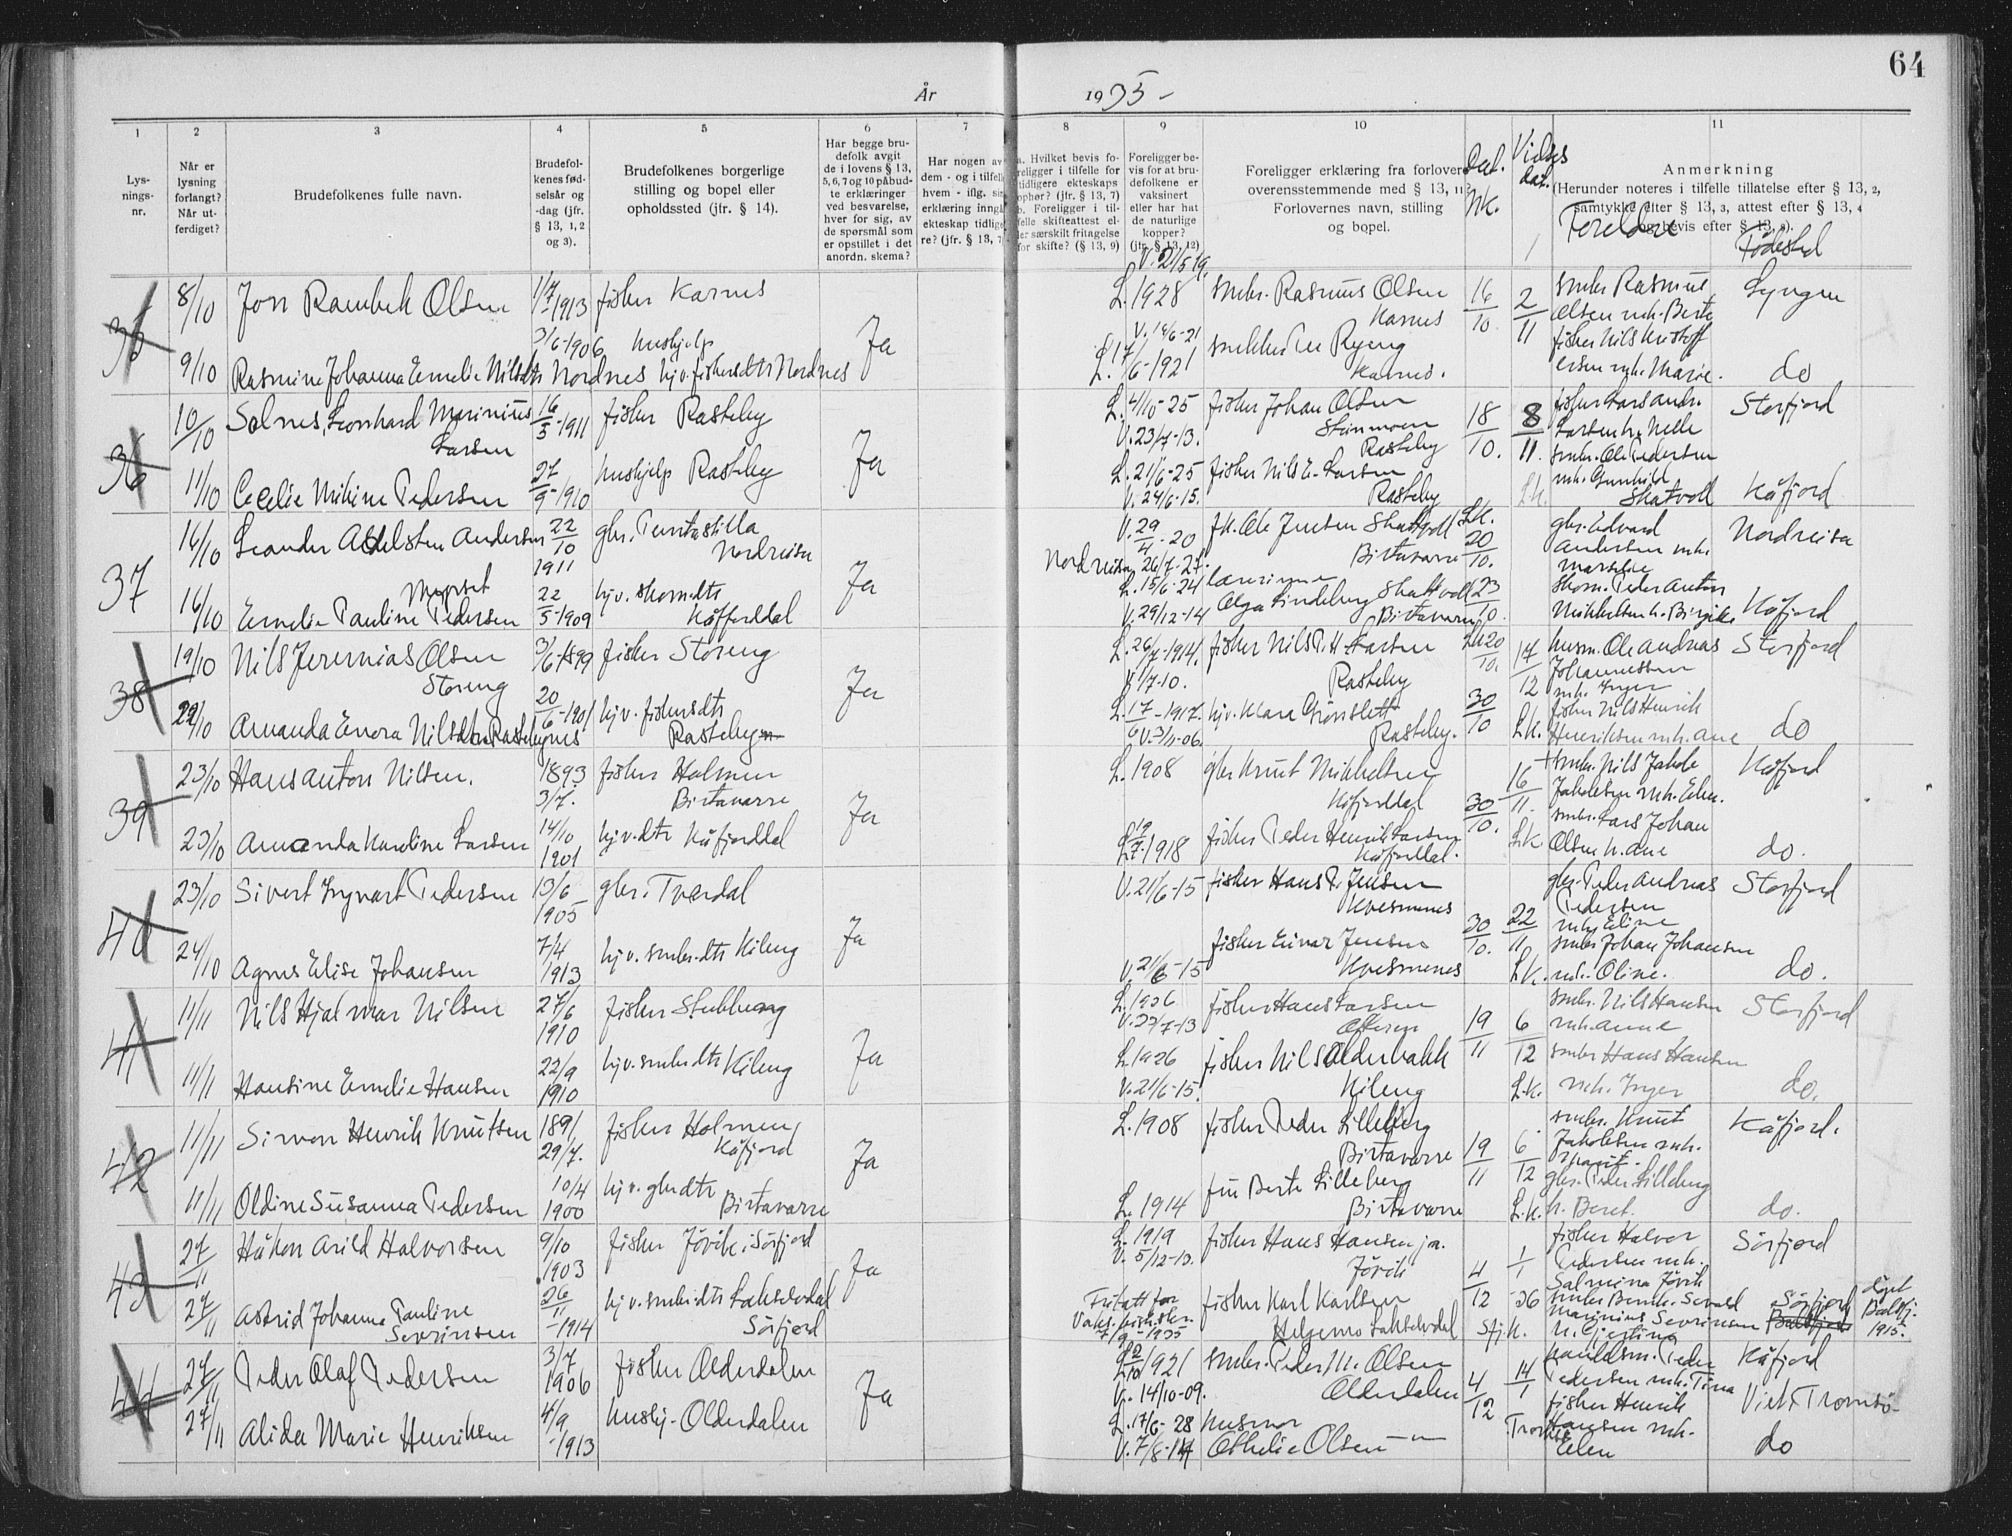 64
År 1935-
1 2 3 4 5 6 7 8 9 10 11
Lys-
nings-
nr.
Når er
lysning
forlangt?
Når ut-
ferdiget?
Brudefolkenes fulle navn.
Brudefol-
kenes fød-
selsår og
-dag (jfr.
§ 13, 1,2
og 3).
Brudefolkenes borgerlige
stilling og bopel eller
opholdssted (jfr. § 14).
Har begge bru-
defolk avgit
de i lovens § 13,
5, 6, 7 og 10 påbud-
te erklæringer
ved besvarelse,
hver for sig, av
de spørsmål som
er opstillet i det
anordn. skema?
Har nogen av
dem - og i tilfelle
hvem - iflg. sin
erklæring inngå
ekteskap tidlige
re? (jfr. § 13, 7
a. Hvilket bevis fo-
religger i tilfelle for
tidligere ekteskaps
ophør? (jfr. § 13, 7)
b. Foreligger i til-
felle skifteattest el-
ler særskilt fritagelse
for skifte? (§ 13, 9)
Foreligger be-
vis for at bru-
defolkene er
vaksinert
eller har hat
de naturlige
kopper?
(jfr. § 13, 12)
Foreligger erklæring fra forlovere
overensstemmende med § 13, 11?
Forlovernes navn, stilling
og bopel.
Vielses
dat.
Anmerkning
(Herunder noteres i tilfelle tillatelse efter § 13, 2,
samtykke efter § 13, 3, attest efter § 13, 4
og bevis efter § 13, 8).
Foreldre Fødested
35 8/10 Jon Rambek Olsen 1/7-1913 fisker Karnes Ja V. 21/5 19. L. 1928 småbr. Rasmus Olsen Karnes 16/10. 2/11 småbr Rasmus Olsen mh. Berte Lyngen
9/10 Rasmine Johanna Emelie Nilsdtr Nordnes 3/6-1906 hushjelp hjv. fiskersdtr Nordnes V. 14/6-21 L. 17/6-1921 Ryeng Karnes. fisker Nils Kristoffersen mh. Marie. do
36 10/10 Solnes, Leonhard Marinius Larsen 16/5-1911 fisker Rasteby Ja L. 4/10-25 V. 23/7-13. fisker Johan Olsen Steinmoen Rasteby 18/10. 8/11. fisker Lars Andr. Larsen h. Nelle Storfjord
11/10 Cecelie Mikine Pedersen 27/9-1910 hushjelp Rasteby L. 21/6-25 V. 24/6-15. fisker Nils E. Larsen Rasteby L.k. småbr. Ole Pedersen mh. Gunhild Skatvoll Kåfjord
37 16/10 Leander Adelsten Andersen 22/10 1911 gbr. Punta stilla Nordreisa Ja V. 29/4-20 Nordreisa 26/7-27. fh. Ole Jensen Skattvoll Birtavarre L.k. 20/10. gbr. Edvard Andersen mh. Marselie Nordreisa
16/10 Emelie Pauline Pedersen 22/5-1909 hjv. skom.dtr Kåfjorddal L. 15/6-24 V. 29/12-14 lærerinne Olga Lindeberg Skattvoll Birtavarre 23/10. skom. Peder Anton Mikkelsen h. Birgitte Kåfjord
38 19/10 Nils Jeremias Olsen Storeng 3/6-1899 fisker Storeng Ja L. 26/7-1914. V. 17-10. fisker Nils P. H. Larsen Rasteby L.k. 20/10. 17/12 husm. Ole Andreas Johannessen mh. Inger Storfjord
22/10 Amanda Enora Nilsdtr Rastebynes 20/6-1901 hjv. fiskersdtr Rasteby L. 17/6-1917. V. 3/11-06. hjv. Klara Grønslett Rasteby. 30/10 L.k. fisker Nils Henrik Henriksen mh. Ane do
39 23/10 Hans Anton Nilsen. 1893 3/7. fisker Holmen Birtavarre Ja L. 1908 gbr Knut Mikkelsen Kåfjorddal 30/10. 16/11. småbr. Nils Jakob Jakobsen mh. Elen. Kåfjord
23/10 Amanda Karoline Larsen 14/10 1901 hjv.dtr Kåfjorddal L. 19/7-1918 fisker Peder Henrik Larsen Kåfjorddal. L.k. småbr. Lars Johan Olsen h. Ane do.
40 23/10 Sivert Ingvart Pedersen 13/6 1905 gbr. Tverdal Ja V. 21/6-15 fisker Hans P. Jensen Kvesmenes 30/10. 22/11 gbr. Peder Andreas Pedersen mh. Eline Storfjord
24/10 Agnes Elise Johansen 7/4 1913 hjv. småbr.dtr Kileng V. 21/6-15 fisker Einar Jensen Kvesmenes L.k. småbr Johan Johansen mh. Oline. do.
41 11/11 Nils Hjalmar Nilsen 27/6 1910 fisker Stubbeng Ja L. 1926 V. 23/7-13 fisker Hans Larsen Oteren 19/11 6/12 småbr. Nils Hansen mh. Anne Storfjord
11/11 Hansine Emelie Hansen 22/9 1910 hjv. småbr.dtr Kileng L. 1926 V. 21/6-15. fisker Nils Olderbakk Kileng L.k. småbr Hans Hansen mh. Inger do.
42 11/11 Simon Henrik Knutsen 1891 29/7. fisker Holmen Kåfjord Ja L. 1908 fisker Peder Lilleberg Birtavarre 19/11 6/12 småbr. Knut Jakobsen mh. Kåfjord.
11/11 Oldine Susanna Pedersen 10/4 1900 hjv. gbrdtr Birtavarre L. 1914 fru Berte Lilleberg Birtavarre L.k. gbr. Peder Lilleberg h. Beret. do.
43 27/11 Håkon Arild Halvorsen 9/10 1903 fisker Jøvik i Sørfjord Ja L. 1919 V. 5/12-13. fisker Hans Hansen jr. Jøvik 4/12 1/1 -36 fisker Halvor Pedersen mh. Salmina Jøvik Sörfjord
27/11 Astrid Johanne Pauline Sevrinsen 26/11-1914 hjv. småbr.dtr Lakselvdal Sörfjord Fritatt for 7/9-1935 fisker Karl Karlsen Helgemo Lakselvdal Sfj.k. småbr Bernh. Sevald Marinius Sevrinsen h. Gjertine Sörfjord döpt Balsfj. 1915.
44 27/11 Peder Olaf Pedersen 3/7 1906 fisker Olderdalen Ja L. 2/10 1921 V. 14/10-09. småbr. Peder M. Olsen Olderdalen 4/12 14/1 Peder Pedersen mh. Tina Kåfjord
27/11 Alida Marie Henriksen 4/9-1913 hushj. Olderdalen L. 17/6-28 V. 7/8-14 husmor Othelie Olsen -"- Tromsø fisker Henrik Hansen mh. Elen do Viet i Tromsö